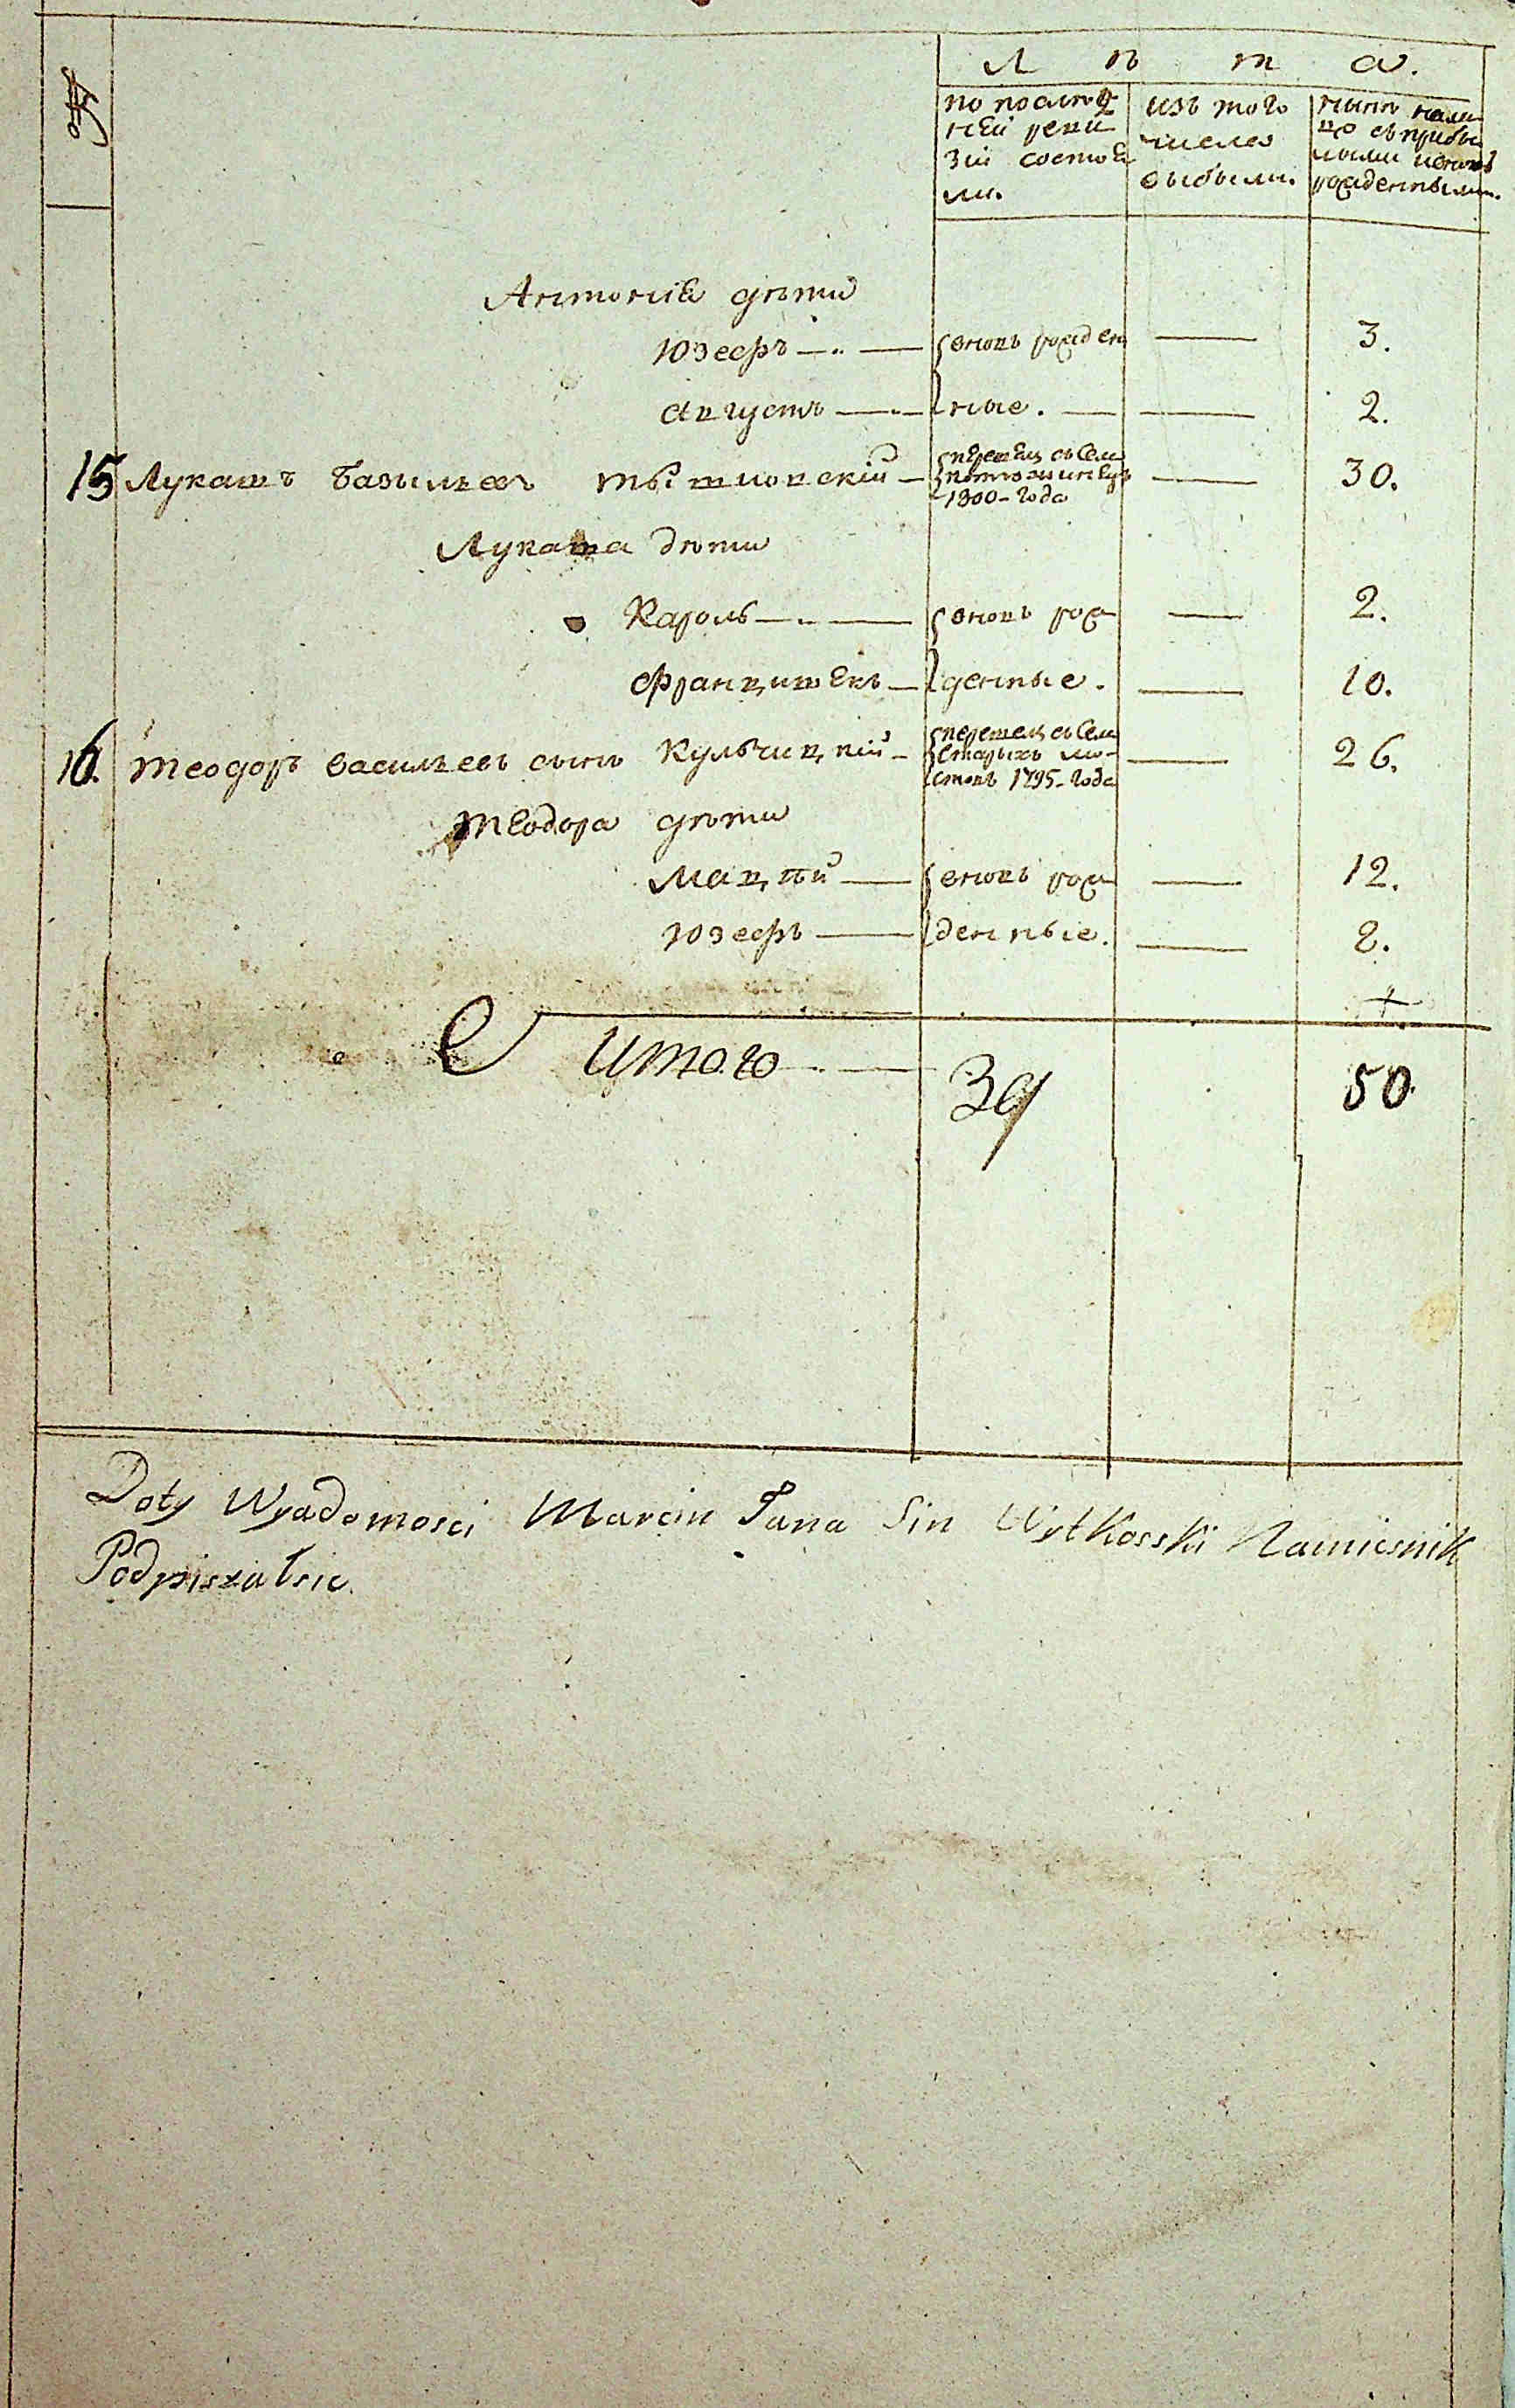 №
Л ѣ т а.
по послѣд
ней реви
зіи состоя
ли.
изъ того
числа
выбыли.
нынѣ нали
цо съ прибы
лыми и вновь
рожденными.
Антонія дѣти
Юзефъ — вновь рожден — 3.
Августъ — ные. — 2.
15 Лукашъ Базылевъ — перешел съ села
1800 - года — 30.
Лукаша дѣти
Кароль — вновь рож — 2.
Францишекъ — денные. — 10.
16. Теодоръ Васильевъ сынъ Кульчицкій — перешел съ села
Старыхъ мо-
стовъ 1795 - года — 26.
Теодора дѣти
Мацѣй — вновь рож — 12.
Юзефъ — денные. — 8.
Итого — 39 50.
Doty Wyadomosci Marcin Jana Sin Witkosski Namiesnik
Podpiszalsie.